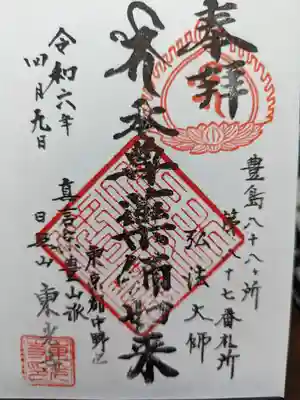 奉拝
豊島八十八ヶ所
第八十七番札所
弘法大師
本尊薬師如来
東京都中野区
真言宗豊山派
日王山 東光寺
令和六年
四月九日